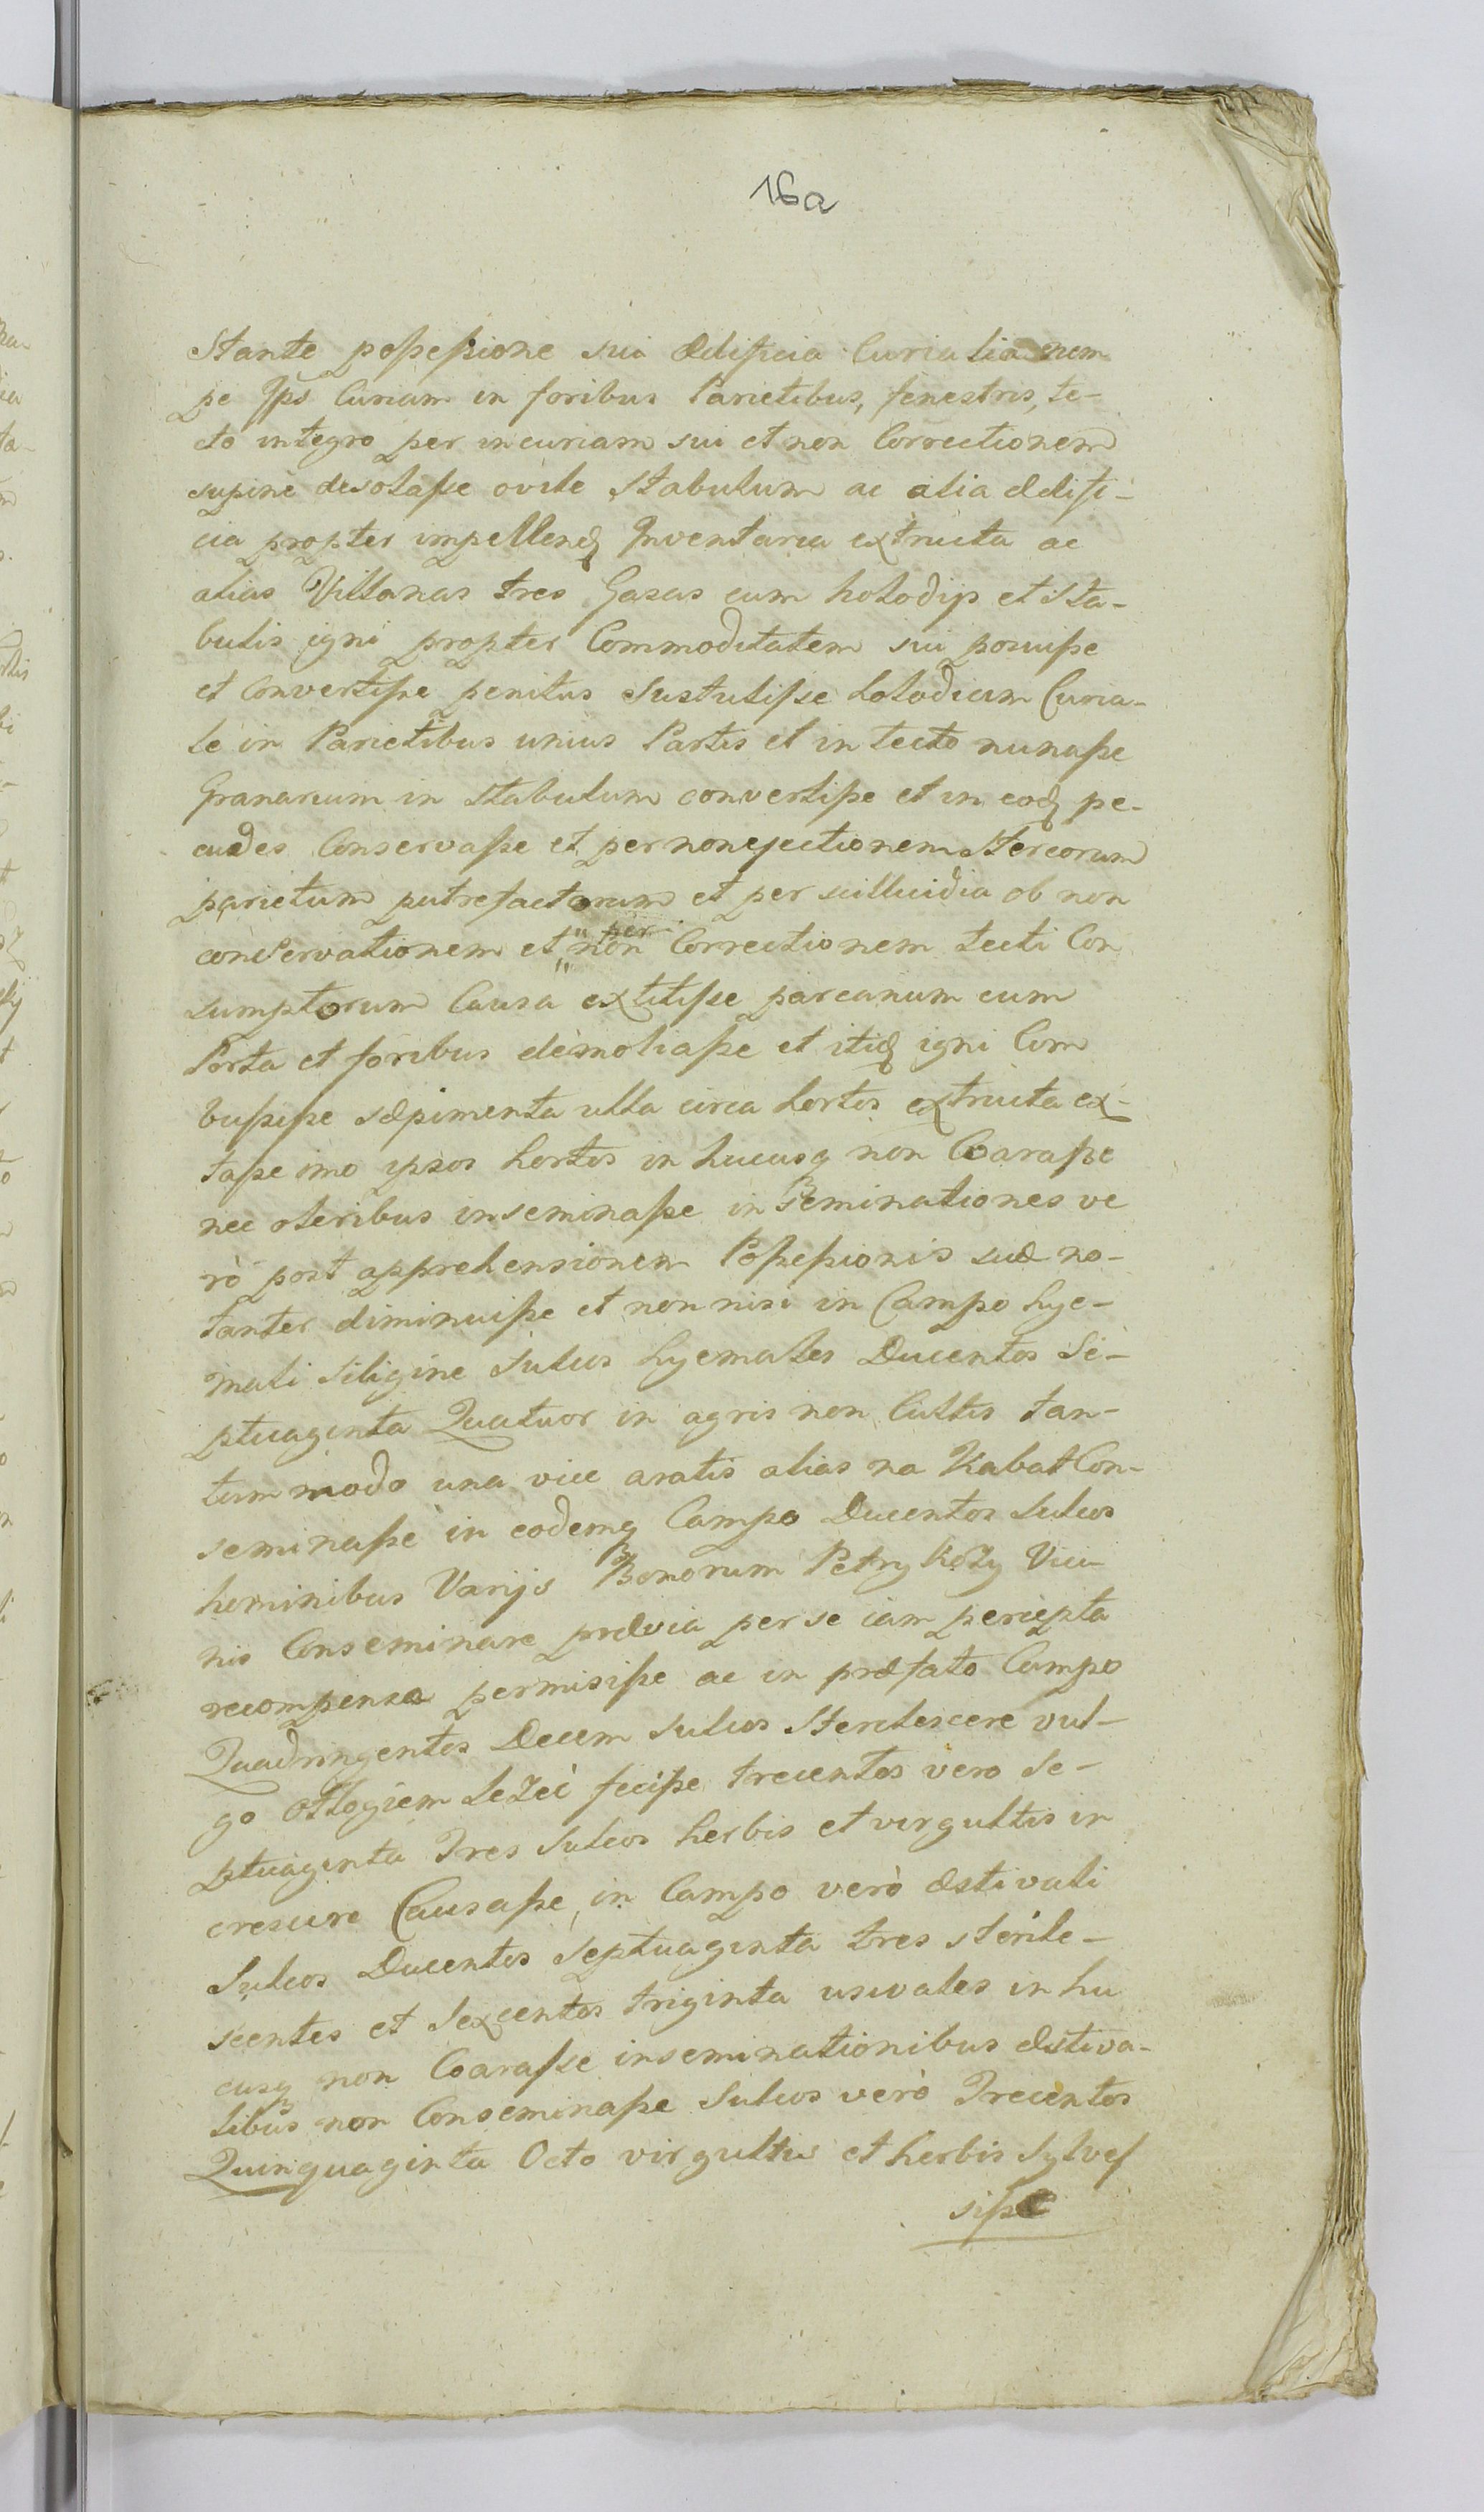 16a
Stante possessione sui ædificia Curialia nem
pe Ips Curiam in foribus Parietibus, fenestris, te-
cto integro per incuriam sui et non Correctionem
supine desolasse ovile Stabulum ac alia ædifi-
cia propter impellenq Inventaria extructa ac
alias Villanas tres Gazas cum holodijs et Sta-
bulis igni propter Commoditatem sui posuisse
et Convertisse penitus Sustulisse holodium Curia-
le in Parietibus unius Partis et in tecto runasse
Granarium in stabulum convertisse et in eodq pe-
cudes Conservasse et per non ejectionem Stercorum
parietum putrefactorum et per scilluidia ob non
conservationem et "per non Correctionem tecti Con
sumptorum Causa extitisse parcanum cum
Porta et foribus demoliasse et itidq igni Com
bussisse sæpimenta ulla circa hortos extructa ex-
tasse imo ipsos hortos in hucusq non Coarasse
nec oleribus inseminasse inseminationes ve
rò post apprehensionem Possessionis suæ no-
tanter diminuisse et non nisi in Campo hye-
mali Siligine Sulcos hyemales Ducentos Se-
ptuaginta Quatuor in agris non Cultis tan-
tum modo una vice aratis alias na Kabat Con-
seminasse in eodemq Campo Ducentos Sulcos
hominibus Varijs Bonorum Petrykozy Vici-
nis Conseminare prævia per se iam percepta
recompensa permisisse ac in præfato Campo
Quadringentos Decem Sulcos Sterilescere vul-
go otlogiem leżeć fecisse trecentos vero Se-
ptuaginta Tres Sulcos herbis et virgultis in
crescere Causasse, in Campo verò æstivali
Sulcos Ducentos Septuaginta tres sterile-
scentes et Sexcentos triginta usivales in hu
cusq non Coarasse inseminationibus æstiva-
libus non Conseminasse Sulcos verò Trecentos
Quinquaginta Octo virgultis et herbis Sylves
sisse